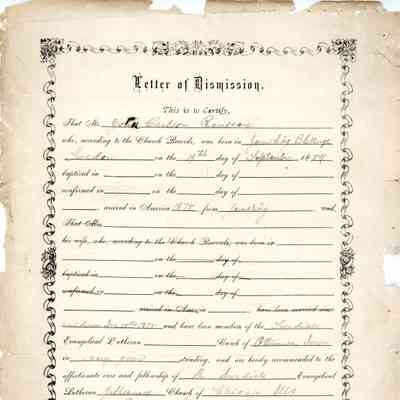 Letter of Dismission.
This is to Certify,
That Mr. Carlson
who, according to the Church Records, was born in Blekinge
Sweden on the 19th day of September 1854
baptized in on the day of
confirmed in on the day of
arrived in America 1878 from and
That Mrs.
his wife, who according to the Church Records, was born in
on the day of
baptized in on the day of
confirmed in on the day of
arrived in America have been married
and have been members of the Swedish
Evangelical Lutheran Church of Ottumwa Iowa
in very good standing, and are hereby recommended to the
affectionate care and fellowship of the Swedish Evangelical
Lutheran Church of Chicago Ills